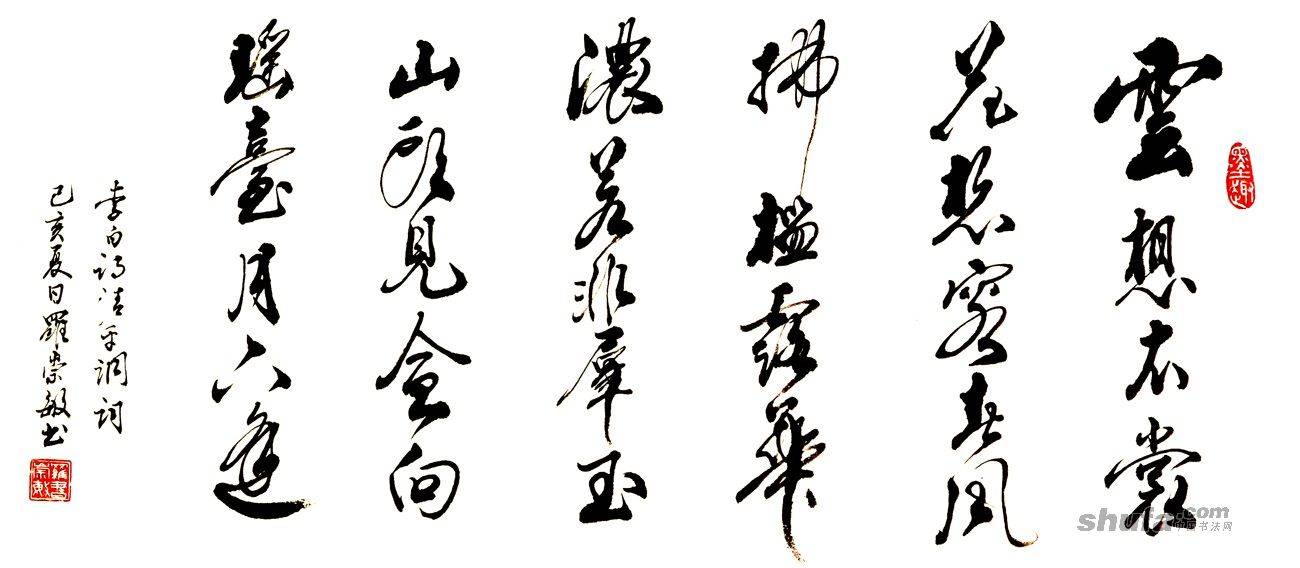 雲想衣裳
花想容春風
拂檻露華
濃若非羣玉
山頭見會向
瑤臺月下逢
李白詩清平調詞
己亥夏日羅崇敏书
墨趣
shufa.com
中国书法网